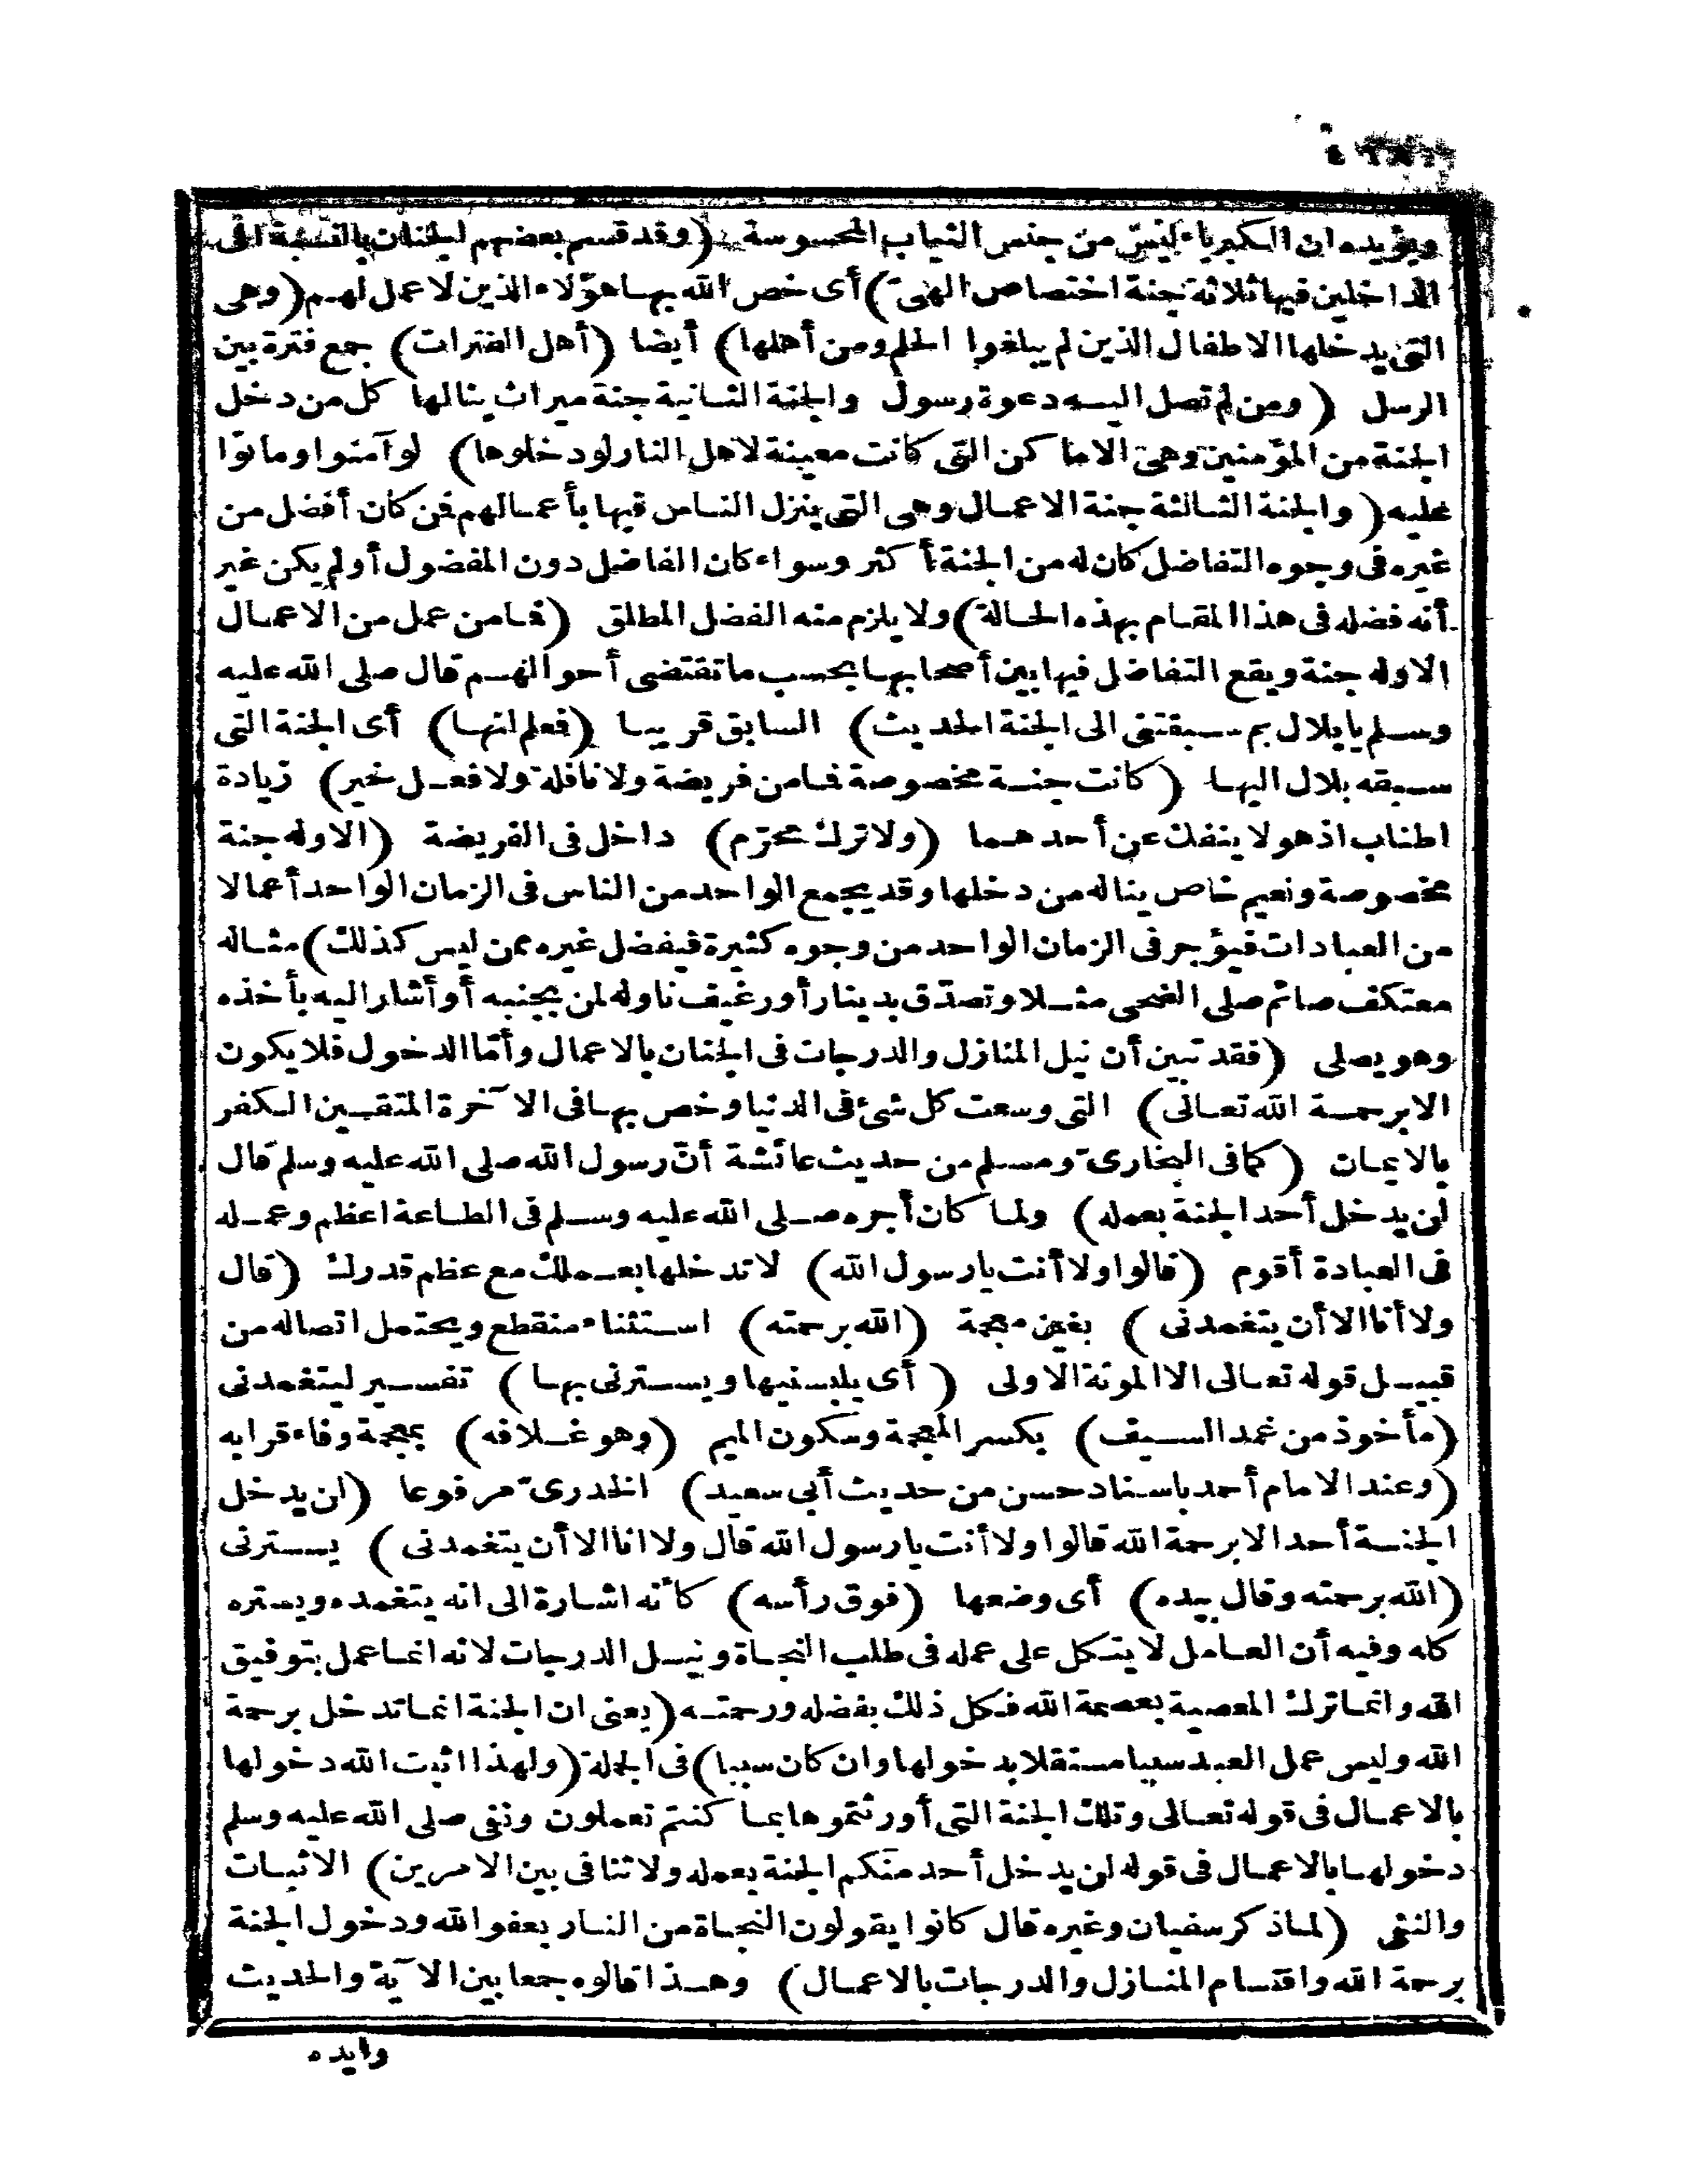 ويؤيده ان الكبرياء ليس من جنس الثياب المحسوسة (وقد قسم بعضهم الجنان بالنسبة الى
الداخلين فيها ثلاثة جنة اختصاص الهىّ) أى خص الله بها هؤلاء الذين لا عمل لهم (وهى
التى يدخلها الاطفال الذين لم يبلغوا الحلم ومن أهلها) أيضا (أهل الفترات) جمع فترة بين
الرسل (ومن لم تصل اليه دعوة رسول والجنة الثانية جنة ميراث ينالها كل من دخل
الجنة من المؤمنين وهى الاماكن التى كانت معينة لاهل النار لو دخلوها) لو آمنوا وماتوا
عليه (والجنة الثالثة جنة الاعمال وهى التى ينزل الناس فيها بأعمالهم فمن كان أفضل من
غيره فى وجوه التفاضل كان له من الجنة أكثر وسواء كان الفاضل دون المفضول أو لم يكن غير
أنه فضله فى هذا المقام بهذه الحالة) ولا يلزم منه الفضل المطلق (فما من عمل من الاعمال
الاوله جنة ويقع التفاضل فيها بين أصحابها بحسب ما تقتضى أحوالهم قال صلى الله عليه
وسلم يا بلال بم سبقتنى الى الجنة الحديث) السابق قريبا (فعلم انها) أى الجنة التى
سبقه بلال اليها (كانت جنة مخصوصة فما من فريضة ولا نافلة ولا فعل خير) زيادة
اطناب اذ هو لا ينفك عن أحدهما (ولا ترك محرّم) داخل فى الفريضة (الاوله جنة
مخصوصة ونعيم خاص يناله من دخلها وقد يجمع الواحد من الناس فى الزمان الواحد أعمالا
من العبادات فيؤجر فى الزمان الواحد من وجوه كثيرة فيفضل غيره ممن ليس كذلك) مثاله
معتكف صائم صلى الضحى مثلا وتصدّق بدينار أو رغيف ناوله لمن بجنبه أو أشار اليه بأخذه
وهو يصلى (فقد تبين أن نيل المنازل والدرجات فى الجنان بالاعمال وأمّا الدخول فلا يكون
الا برحمة الله تعالى) التى وسعت كل شئ فى الدنيا وخص بها فى الآخرة المتقين الكفر
بالايمان (كما فى البخارىّ ومسلم من حديث عائشة أنّ رسول الله صلى الله عليه وسلم قال
لن يدخل أحد الجنة بعمله) ولما كان أجره صلى الله عليه وسلم فى الطاعة اعظم وعمله
فى العبادة أقوم (قالوا ولا أنت يا رسول الله) لا تدخلها بعملك مع عظم قدرك (قال
ولا أنا الا أن يتغمدنى) بغين معجمة (الله برحمته) استثناء منقطع ويحتمل اتصاله من
قبيل قوله تعالى الا الموتة الاولى (أى يلبسنيها ويسترنى بها) تفسير ليتغمدنى
(مأخوذ من غمد السيف) بكسر المعجمة وسكون الميم (وهو غلافه) بمعجمة وفاء قرابه
(وعند الامام أحمد باسناد حسن من حديث أبى سعيد) الخدرىّ مرفوعا (لن يدخل
الجنة أحد الا برحمة الله قالوا ولا أنت يا رسول الله قال ولا انا الا أن يتغمدنى) يسترنى
(الله برحمته وقال بيده) أى وضعها (فوق رأسه) كأنه اشارة الى انه يتغمده ويستره
كله وفيه أن العامل لا يتكل على عمله فى طلب النجاة ونيل الدرجات لانه انما عمل بتوفيق
الله وانما ترك المعصية بعصمة الله فكل ذلك بفضله ورحمته (يعنى ان الجنة انما تدخل برحمة
الله وليس عمل العبد سببا مستقلا بدخولها وان كان سببا) فى الجملة (ولهذا اثبت الله دخولها
بالاعمال فى قوله تعالى وتلك الجنة التى أورثتموها بما كنتم تعملون ونفى صلى الله عليه وسلم
دخولها بالاعمال فى قوله لن يدخل أحد منكم الجنة بعمله ولا تنافى بين الامرين) الاثبات
والنفى (لما ذكر سفيان وغيره قال كانوا يقولون النجاة من النار بعفو الله ودخول الجنة
برحمة الله واقتسام المنازل والدرجات بالاعمال) وهذا قالوه جمعا بين الآية والحديث
وايده